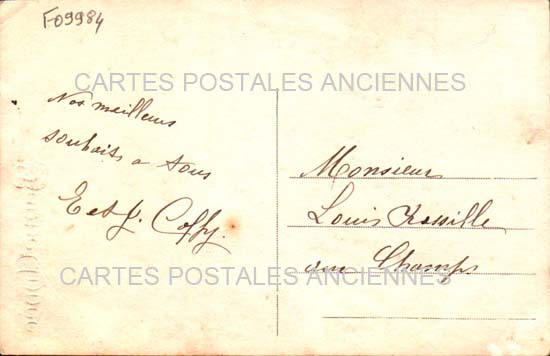 F09984
CARTES POSTALES ANCIENNES
Nos meilleurs
souhaits a tous
E et J. Coffy.
Monsieur
Louis
au Champs
CARTES POSTALES ANCIENNES